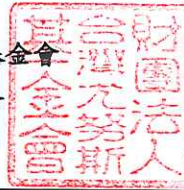 金會
財團法人
台灣尤努斯
基金會